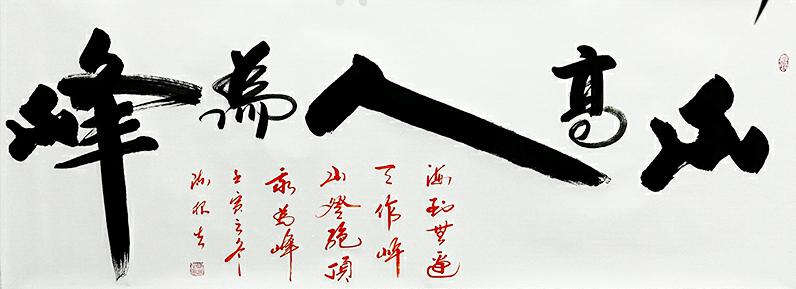 山高人為峰
海到無邊
天作岸
山登絕頂
我為峰
壬寅之冬